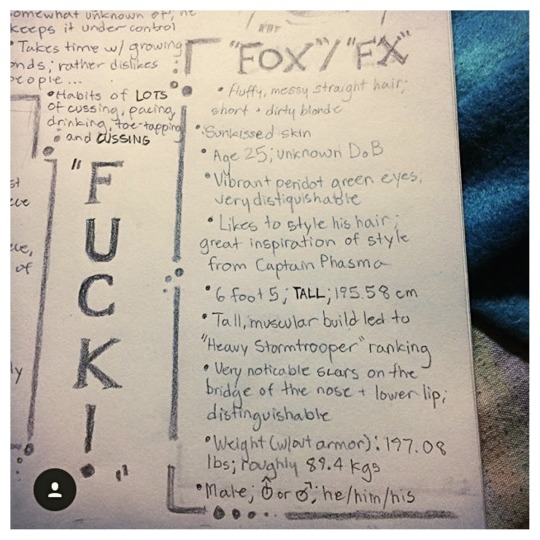 somewhat unknown of, he
keeps it under control
• Takes time w/ growing
onds; rather dislikes
people ...
• Habits of LOTS
of cussing, pacing,
drinking, toe-tapping
• and CUSSING
"F
U
C
K
! "
of
"FOX" / "FX"
• Fluffy, messy straight hair;
short + dirty blonde
• Sunkissed skin
• Age 25; unknown DoB
• Vibrant peridot green eyes;
very distiquishable
• Likes to style his hair;
great inspiration of style
from Captain Phasma
• 6 foot 5; TALL; 195.58 cm
• Tall, muscular build led to
"Heavy Stormtrooper" ranking
• Very noticable scars on the
bridge of the nose + lower lip;
distinguishable
• Weight (w/out armor): 197.08
lbs; roughly 89.4 kgs
• Male; ♂ or ♂; he/him/his